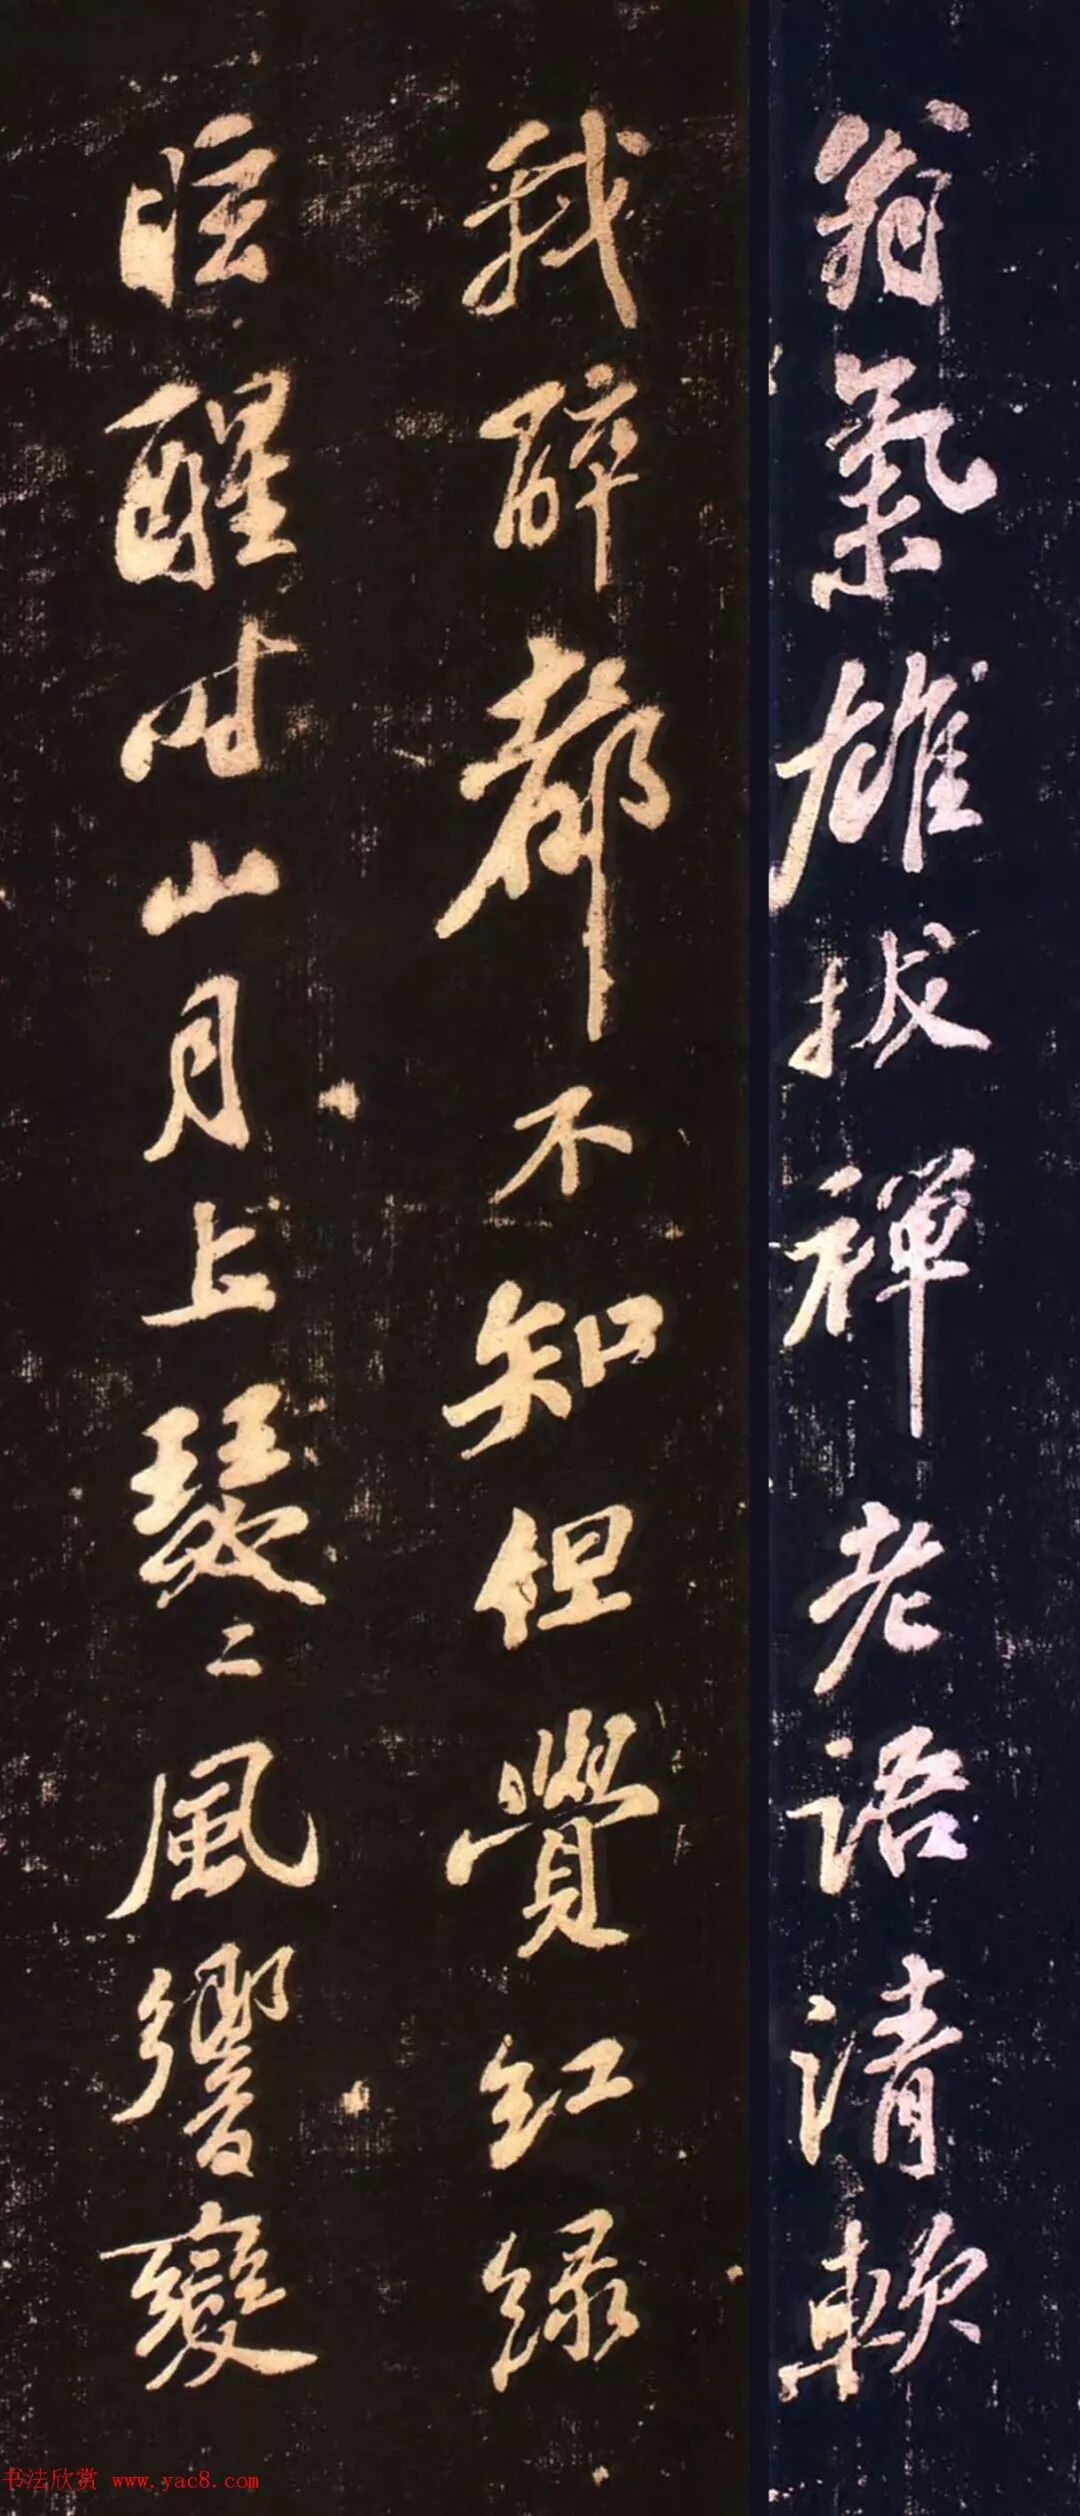 翁氣雄拔禪老語清軟
我醉都不知但覺紅綠
眩醒時山月上瑟二風響變
书法欣赏 www.yac8.com